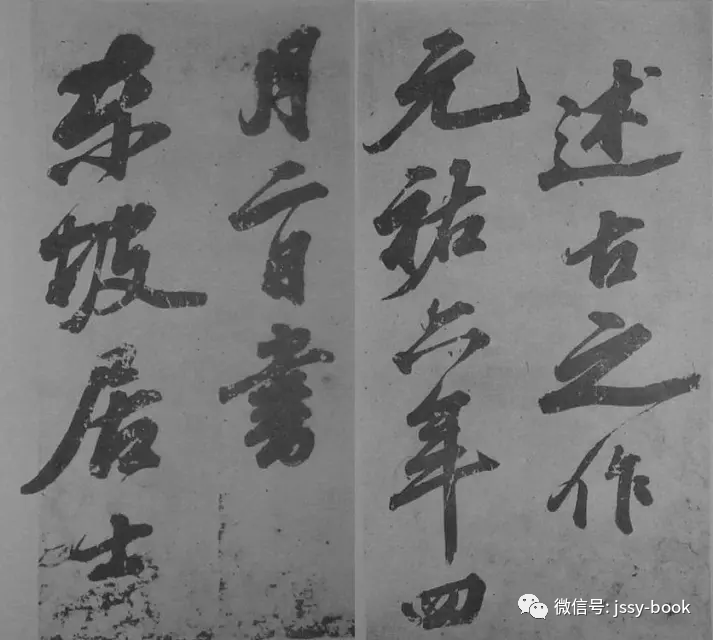 述古之作
元祐六年四
月二日書
東坡居士
微信号: jssy-book